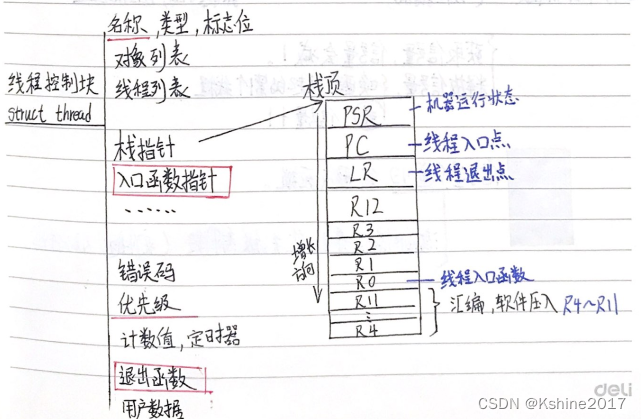 名称,类型,标志位
对象列表
线程控制块
struct thread
线程列表
栈指针
入口函数指针
……
错误码
优先级
计数值,定时器
退出函数
用户数据
栈顶
增长方向
PSR
机器运行状态
PC
线程入口点
LR
线程退出点
R12
R3
R2
R1
R0
线程入口函数
R11
⋮
R4
汇编,软件压入 R4~R11
deli
CSDN @Kshine2017